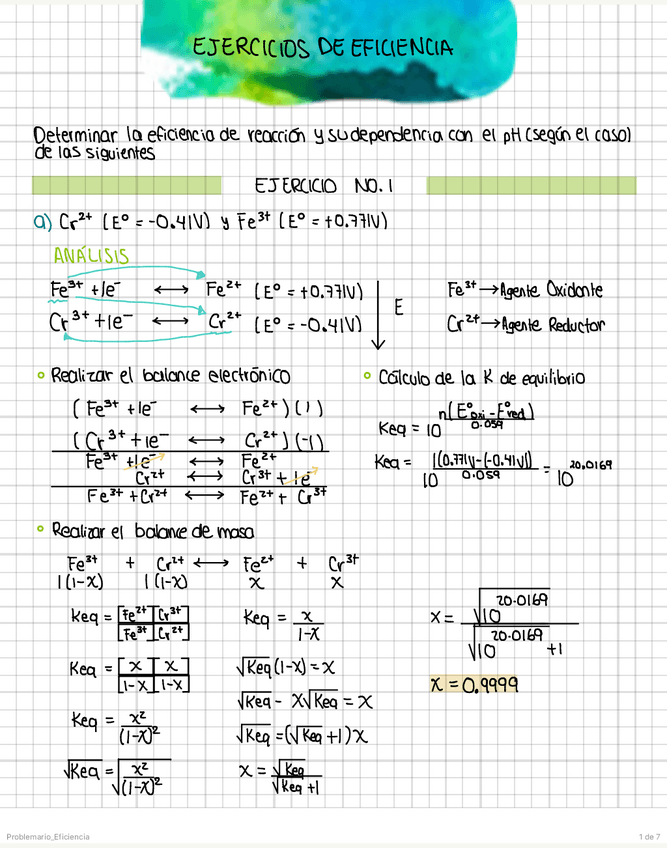 EJERCICIOS DE EFICIENCIA
Determinar la eficiencia de reacción y su dependencia con el pH (según el caso)
de las siguientes
EJERCICIO NO. 1
a) Cr²⁺ (E° = -0.41V) y Fe³⁺ (E° = +0.771V)
ANÁLISIS
Fe³⁺ +1e⁻ ⟷ Fe²⁺ (E° = +0.771V)
Cr³⁺ +1e⁻ ⟷ Cr²⁺ (E° = -0.41V)
E
Fe³⁺ → Agente Oxidante
Cr²⁺ → Agente Reductor
Realizar el balance electrónico
(Fe³⁺ +1e⁻ ⟷ Fe²⁺)(1)
(Cr³⁺ +1e⁻ ⟷ Cr²⁺)(-1)
Fe³⁺ +1e⁻ ⟷ Fe²⁺
Cr²⁺ ⟷ Cr³⁺ +1e⁻
Fe³⁺ + Cr²⁺ ⟷ Fe²⁺ + Cr³⁺
Cálculo de la K de equilibrio
Keq = 10^(n(E°oxi-E°red)/0.059)
Keq = 10^(1(0.771V-(-0.41V))/0.059) = 10^20.0169
Realizar el balance de masa
Fe³⁺ + Cr²⁺ ⟷ Fe²⁺ + Cr³⁺
1(1-x) 1(1-x) x x
Keq = [Fe²⁺][Cr³⁺]/[Fe³⁺][Cr²⁺]
Keq = [x][x]/[1-x][1-x]
Keq = x²/(1-x)²
√Keq = √(x²/√(1-x)²)
Keq = x/1-x
√Keq (1-x) = x
√Keq - x√Keq = x
√Keq = (√Keq +1)x
x = √Keq/√Keq +1
x = √10^20.0169/√10^20.0169 +1
x = 0.9999
Problemario_Eficiencia
1 de 7